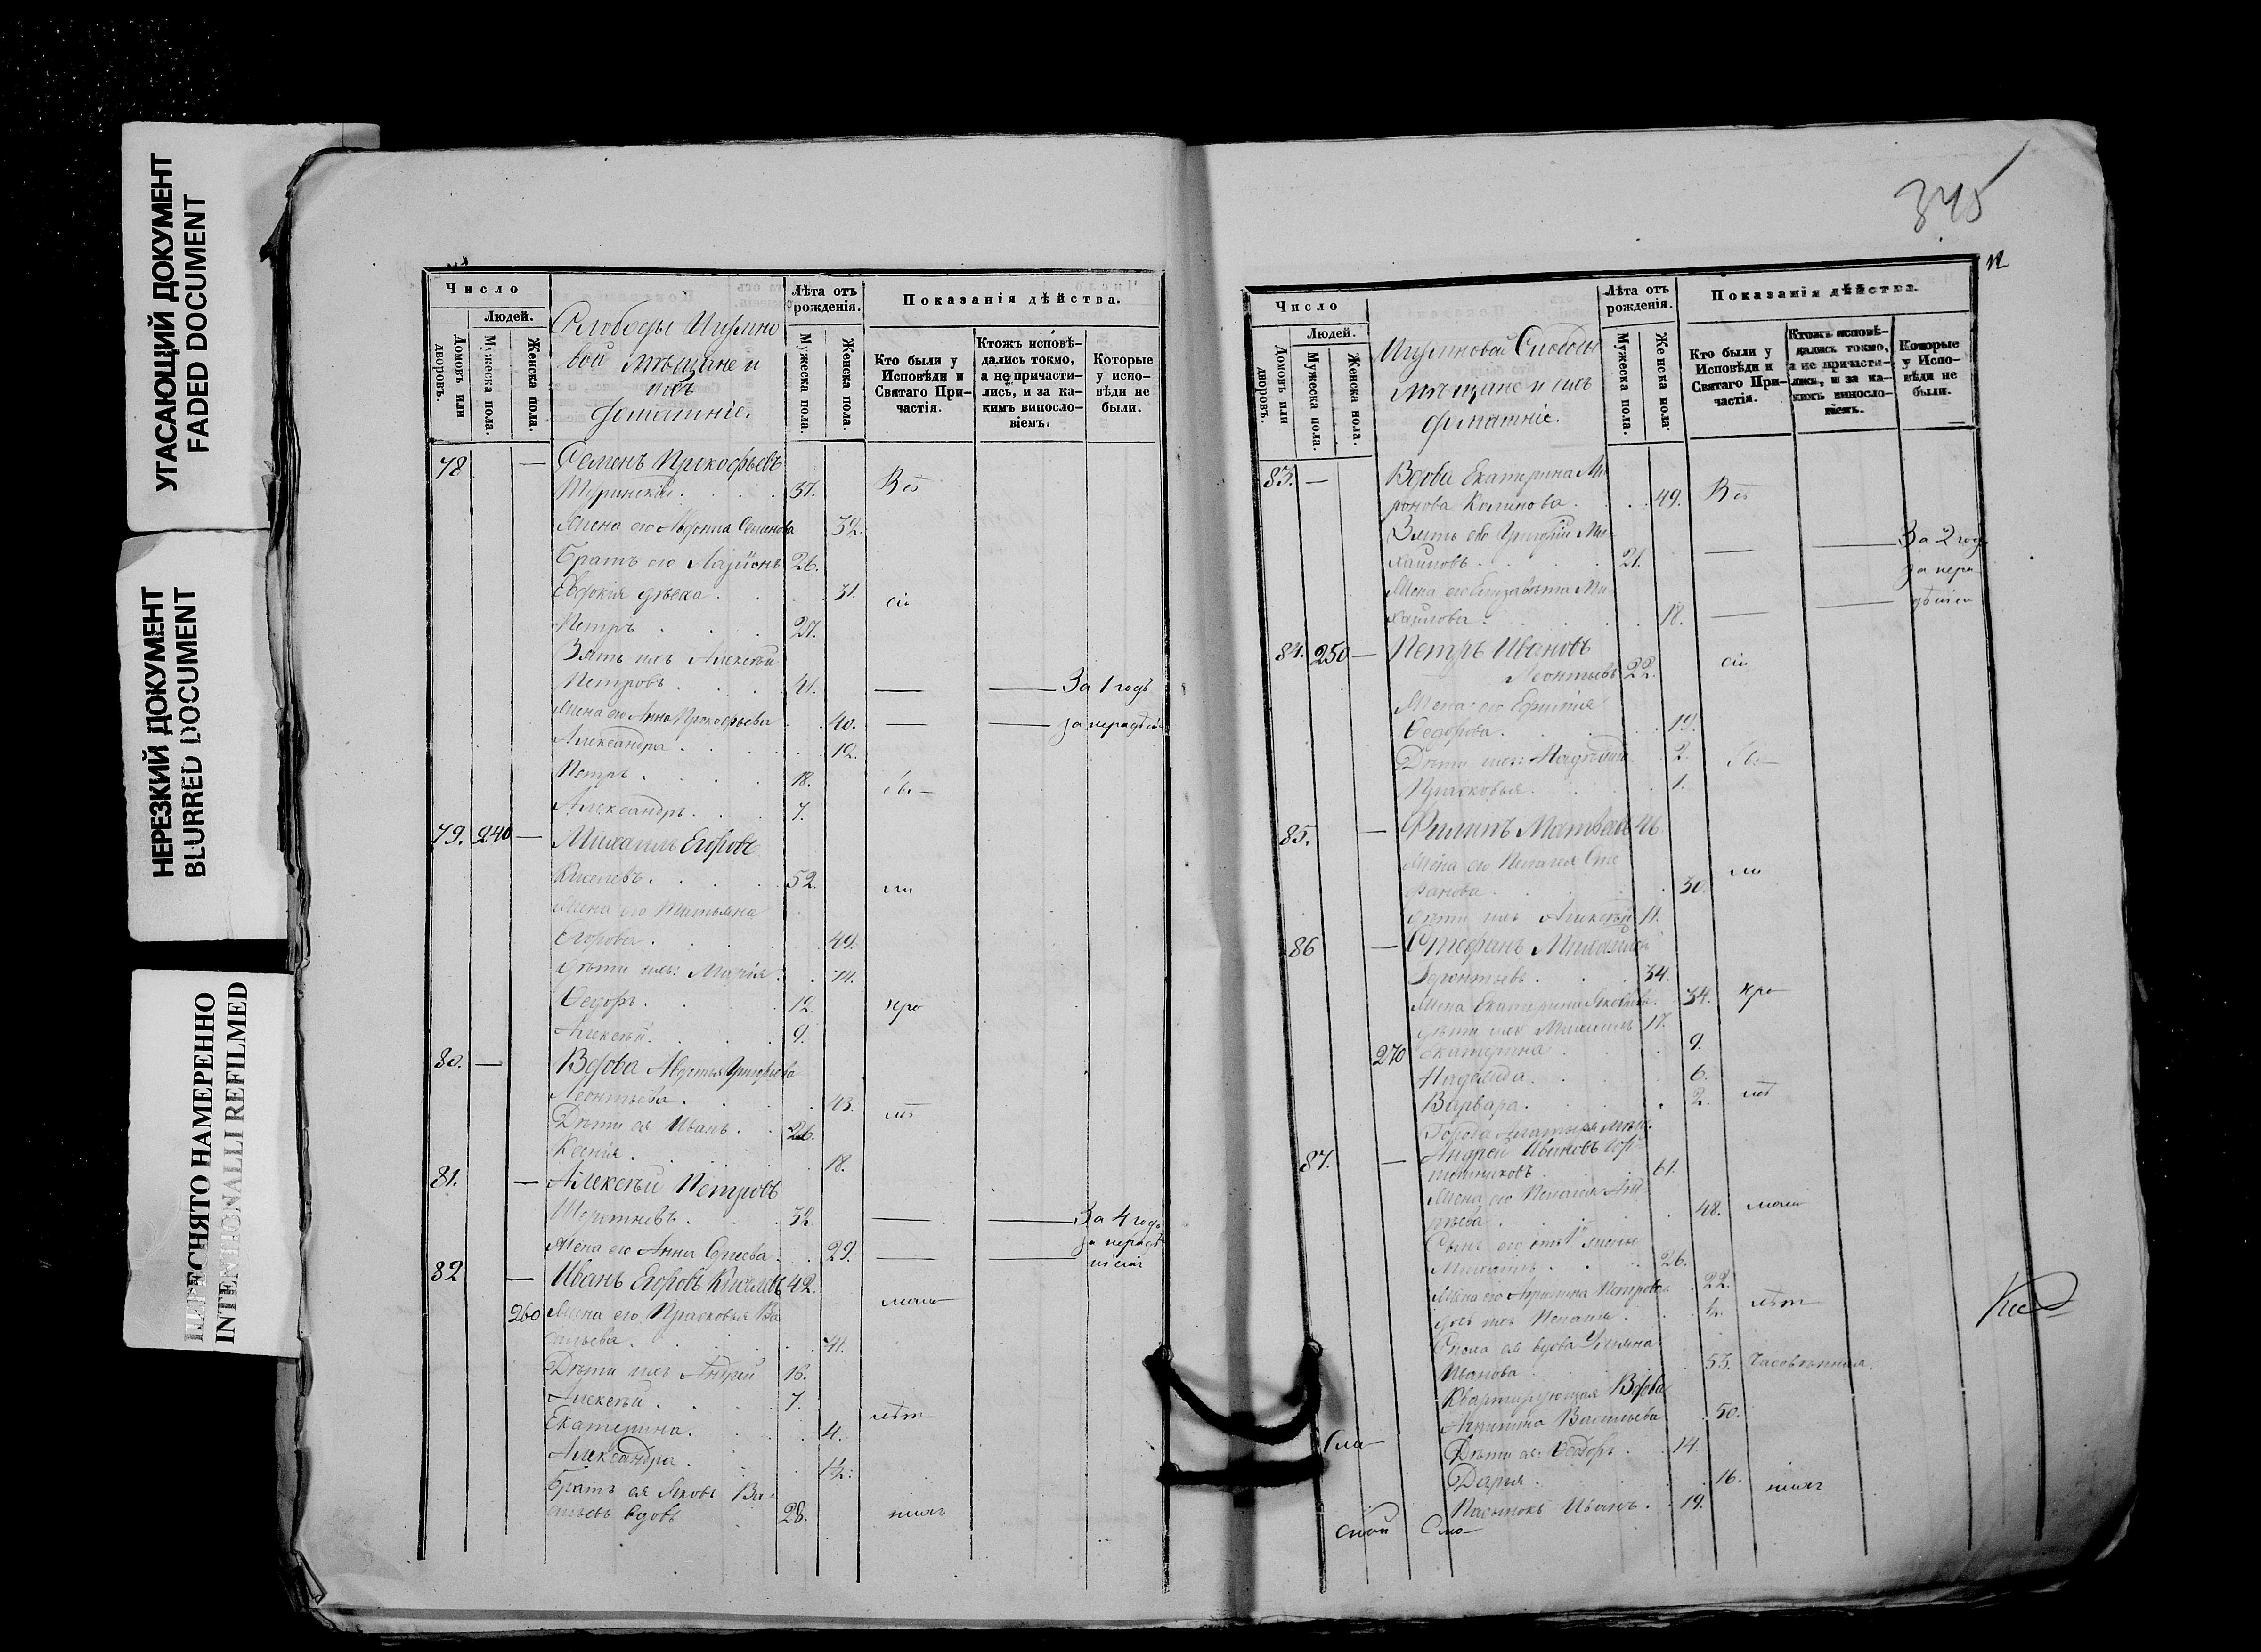 УГАСАЮЩИЙ ДОКУМЕНТ
FADED DOCUMENT
НЕРЕЗКИЙ ДОКУМЕНТ
BLURRED DOCUMENT
ПЕРЕСНЯТО НАМЕРЕННО
INTENTIONALLI REFILMED
Число
Людей.
Домовъ или дворовъ.
Мужеска пола.
Женска пола.
Слободы
вой мѣщане и
ихъ
домашніе.
Лѣта отъ рожденія.
Мужеска пола.
Женска пола.
Показанія дѣйства.
Кто были у Исповѣди и Святаго Причастія.
Ктожъ исповѣдались токмо, а не причастились, и за какимъ винословіемъ.
Которые у исповѣди не были.
78 — Семенъ Прокофьевъ
37. Всѣ
Жена его Авдотья Семенова 32.
Братъ его 26.
Евдокія дѣвка 31. сіи
Петръ 27.
Зять ихъ Алексѣй
Петровъ 41. — — За 1 годъ
Жена его Анна Прокофьева 40. — — за нерадѣніе
Александра 12.
Петръ 18.
Александръ 7.
79. 240 — Михаилъ Егоровъ
Киселевъ 52.
Жена его Татьяна
Егорова 49.
Дѣти ихъ: Марія 14.
Ѳедоръ 12.
Алексѣй 9.
80. — Вдова Авдотья Григорьева
Леонтьева 43.
Дѣти ея Иванъ 26.
Ксенія 18.
81. — Алексѣй Петровъ
32 — — За 4 года
Жена его Анна 29. — — за нерадѣ
ніемъ
82 — Иванъ Егоровъ Киселевъ 42.
260 Жена его Прасковья Ва
сильева 41.
Дѣти ихъ Андрей 16.
Алексѣй 7.
Екатерина 4.
Александра 1½.
Братъ ея Яковъ Ва-
сильевъ вдовъ 28.
345
Число
Людей.
Домовъ или дворовъ.
Мужеска пола.
Женска пола.
Слободы
мѣщане и ихъ
домашніе.
Лѣта отъ рожденія.
Мужеска пола.
Женска пола.
Показанія дѣйства.
Кто были у Исповѣди и Святаго Причастія.
Ктожъ исповѣдались токмо, а не причастились, и за какимъ винословіемъ.
Которые у Исповѣди не были.
83. — Вдова Екатерина Ми
ронова 49. Всѣ
Зять его Григорій Ми
хайловъ 21. — — За 2 года
за нера
Жена его Елизавета Ми
хайлова 18. — — дѣніем
84. 250 — Петръ Ивановъ
Леонтьевъ 22. сіи
Жена его
Ѳедорова 19.
Дѣти ихъ: Надежда 2.
Прасковья 1.
85. — Филипъ Матвѣевъ 46.
Жена его Пелагея Сте
фанова 30.
Дѣти ихъ Алексѣй 11.
86 — Стефанъ Михайловъ
34.
Жена Екатерина Яковлева 34.
Дѣти ихъ Михаилъ 17.
270 Екатерина 9.
Надежда 6.
Варвара 2.
87. — Андрей Ивановъ
61.
Жена его Пелагея Анд
реева 48.
Сынъ его отъ 1й жены
Михаилъ 26.
Жена его Петрова 22.
дочь ихъ Пелагея ½.
вдова Ульяна
Иванова 53.
Квартирующая Вдова
Васильева 50.
Дѣти ея: Ѳедоръ 14.
Дарья 16.
Пасынокъ Иванъ 19.